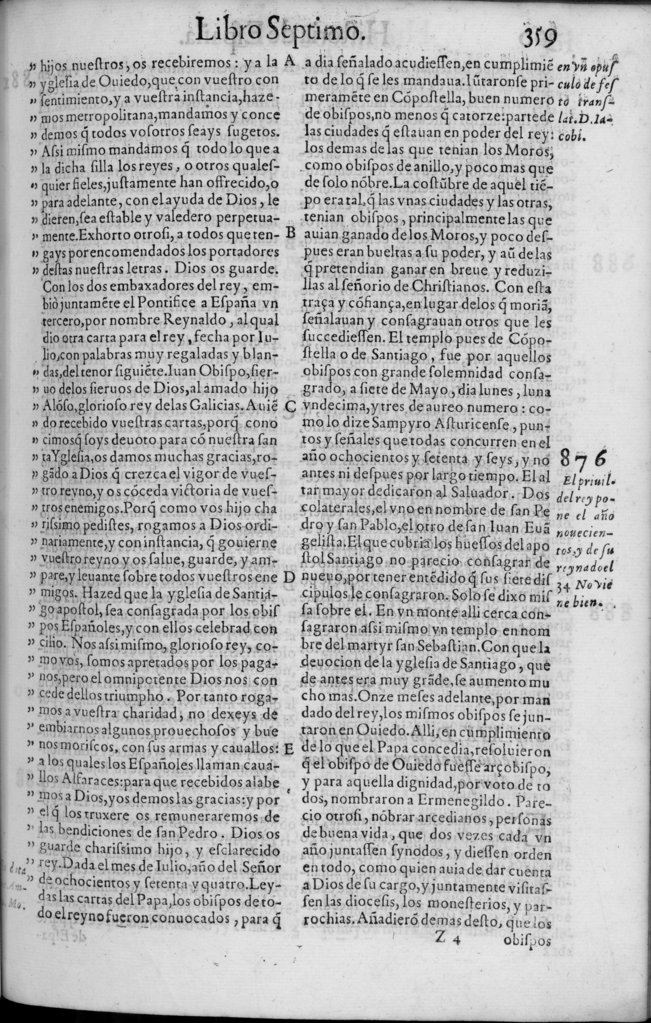 Libro Septimo.
359
” hijos nuestros, os recebiremos: y a la
” yglesia de Ouiedo, que con vuestro con
” sentimiento, y a vuestra instancia, haze-
” mos metropolitana, mandamos y conce
” demos q̃ todos vosotros seays sugetos.
” Assi mismo mandamos q̃ todo lo que a
” la dicha silla los reyes, o otros quales-
” quier fieles, justamente han offrecido, o
” para adelante, con el ayuda de Dios, le
” dieren, sea estable y valedero perpetua-
” mente. Exhorto otrosi, a todos que ten-
” gays por encomendados los portadores
” destas nuestras letras. Dios os guarde.
Con los dos embaxadores del rey, em-
biò juntamẽte el Pontifice a España vn
tercero, por nombre Reynaldo, al qual
dio otra carta para el rey, fecha por Iu-
lio, con palabras muy regaladas y blan-
” das, del tenor siguiẽte. Iuan Obispo, sier-
” uo delos sieruos de Dios, al amado hijo
” Alõso, glorioso rey delas Galicias. Auiẽ
” do recebido vuestras cartas, porq̃ cono
” cimos q̃ soys deuoto para cõ nuestra san
” ta Yglesia, os damos muchas gracias, ro-
” gãdo a Dios q̃ crezca el vigor de vues-
” tro reyno, y os cõceda victoria de vues-
” tros enemigos. Porq̃ como vos hijo cha
” rissimo pedistes, rogamos a Dios ordi-
” nariamente, y con instancia, q̃ gouierne
” vuestro reyno y os salue, guarde, y am-
” pare, y leuante sobre todos vuestros ene
” migos. Hazed que la yglesia de Santia-
” go apostol, sea consagrada por los obis
” pos Españoles, y con ellos celebrad con
” cilio. Nos assi mismo, glorioso rey, co-
” mo vos, somos apretados por los paga-
” nos, pero el omnipotente Dios nos con
” cede dellos triumpho. Por tanto roga-
” mos a vuestra charidad, no dexeys de
” embiarnos algunos prouechosos y bue
” nos moriscos, con sus armas y cauallos:
” a los quales los Españoles llaman caua-
” llos Alfaraces: para que recebidos alabe
” mos a Dios, y os demos las gracias: y por
” el q̃ los truxere os remuneraremos de
” las bendiciones de san Pedro. Dios os
” guarde charissimo hijo, y esclarecido
” rey. Dada el mes de Iulio, año del Señor
” de ochocientos y setenta y quatro. Ley-
das las cartas del Papa, los obispos de to-
do el reyno fueron conuocados, para q̃
A
B
C
D
E
a dia señalado acudiessen, en cumplimiẽ
to de lo q̃ se les mandaua. Iũtaronse pri-
meramẽte en Cõpostella, buen numero
de obispos, no menos q̃ catorze: parte de
las ciudades q̃ estauan en poder del rey:
los demas de las que tenian los Moros,
como obispos de anillo, y poco mas que
de solo nõbre. La costũbre de aquel tiẽ-
po era tal, q̃ las vnas ciudades y las otras,
tenian obispos, principalmente las que
auian ganado de los Moros, y poco des-
pues eran bueltas a su poder, y aũ de las
q̃ pretendian ganar en breue y reduzi-
llas al señorio de Christianos. Con esta
traça y cõfiança, en lugar delos q̃ moriã,
señalauan y consagrauan otros que les
succediessen. El templo pues de Cõpo-
stella o de Santiago, fue por aquellos
obispos con grande solemnidad consa-
grado, a siete de Mayo, dia lunes, luna
vndecima, y tres de aureo numero: co-
mo lo dize Sampyro Asturicense, pun-
tos y señales que todas concurren en el
año ochocientos y setenta y seys, y no
antes ni despues por largo tiempo. El al
tar mayor dedicaron al Saluador. Dos
colaterales, el vno en nombre de san Pe
dro y san Pablo, el otro de san Iuan Euã
gelista. El que cubria los huessos del apo
stol Santiago no parecio consagrar de
nueuo, por tener entẽdido q̃ sus siete dis
cipulos le consagraron. Solo se dixo mis
sa sobre el. En vn monte alli cerca con-
sagraron assi mismo vn templo en nom
bre del martyr san Sebastian. Con que la
deuocion de la yglesia de Santiago, que
de antes era muy grãde, se aumento mu
cho mas. Onze meses adelante, por man
dado del rey, los mismos obispos se jun-
taron en Ouiedo. Alli, en cumplimiento
de lo que el Papa concedia, resoluieron
q̃ el obispo de Ouiedo fuesse arçobispo,
y para aquella dignidad, por voto de to
dos, nombraron a Ermenegildo. Pare-
cio otrosi, nõbrar arcedianos, personas
de buena vida, que dos vezes cada vn
año juntassen synodos, y diessen orden
en todo, como quien auia de dar cuenta
a Dios de su cargo, y juntamente visitas-
sen las diocesis, los monesterios, y par-
rochias. Añadierõ demas desto, que los
Z 4
obispos
en vn opus
culo de fes
to trans-
lat. D. Ia-
cobi.
876
El priuil-
del rey po-
ne el año
nouecien-
tos, y de su
reynado el
34 No viẽ
ne bien.
data
Am-
Mo.